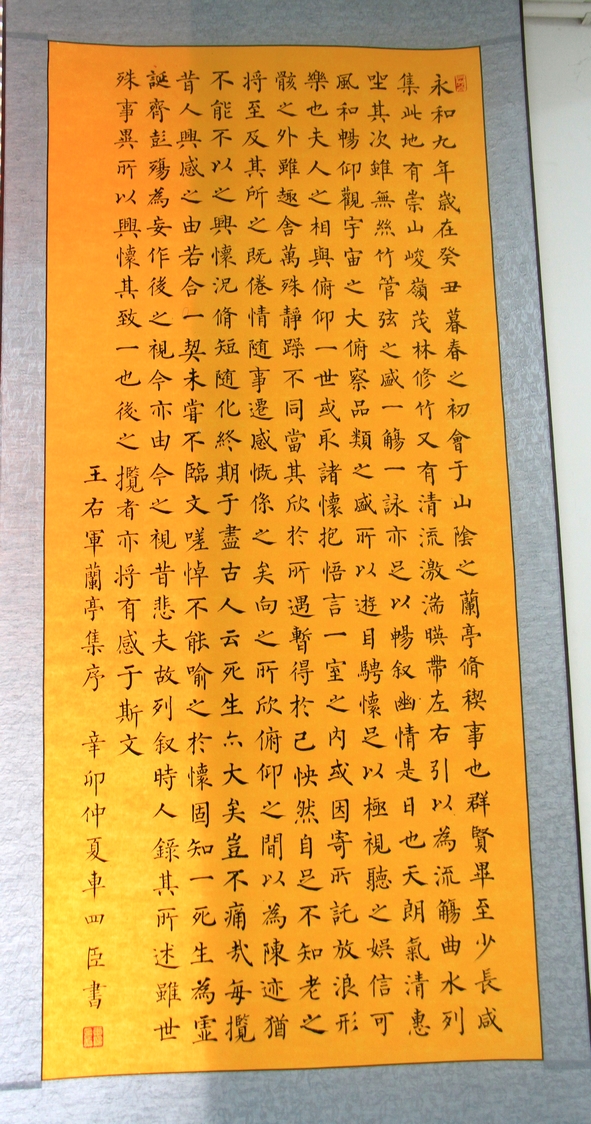 永和九年歲在癸丑暮春之初會于山陰之蘭亭脩稧事也群賢畢至少長咸
集此地有崇山峻嶺茂林修竹又有清流激湍暎帶左右引以為流觴曲水列
坐其次雖無絲竹管弦之盛一觴一詠亦足以暢叙幽情是日也天朗氣清惠
風和暢仰觀宇宙之大俯察品類之盛所以遊目騁懷足以極視聽之娛信可
樂也夫人之相與俯仰一世或取諸懷抱悟言一室之內或因寄所託放浪形
骸之外雖趣舍萬殊靜躁不同當其欣於所遇暫得於己怏然自足不知老之
將至及其所之既倦情隨事遷感慨係之矣向之所欣俯仰之間以為陳迹猶
不能不以之興懷況脩短隨化終期于盡古人云死生亦大矣豈不痛哉每攬
昔人興感之由若合一契未甞不臨文嗟悼不能喻之於懷固知一死生為虛
誕齊彭殤為妄作後之視今亦由今之視昔悲夫故列叙時人錄其所述雖世
殊事異所以興懷其致一也後之攬者亦將有感于斯文
王右軍蘭亭集序 辛卯仲夏車四臣書